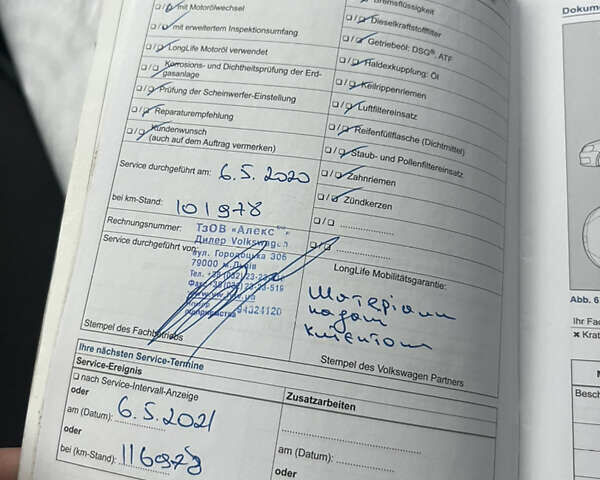 ❏ / ❏ mit Motorölwechsel
❏ / ❏ mit erweitertem Inspektionsumfang
❏ / ❏ LongLife Motoröl verwendet
❏ / ❏ Korrosions- und Dichtheitsprüfung der Erd-
gasanlage
❏ / ❏ Prüfung der Scheinwerfer-Einstellung
❏ / ❏ Reparaturempfehlung
❏ / ❏ Kundenwunsch
(auch auf dem Auftrag vermerken)
Service durchgeführt am: 6.5.2020
bei km-Stand: 101978
Rechnungsnummer:
Service durchgeführt von:
ТзОВ «Алекс
Дилер Volkswagen
вул. Городоцька 306
79000 м. Львів
94324120
Stempel des Fachbetriebs
Bremsflüssigkeit
❏ / ❏ Dieselkraftstofffilter
❏ / ❏ Getriebeöl: DSQ®, ATF
❏ / ❏ Haldexkupplung: Öl
❏ / ❏ Keilrippenriemen
❏ / ❏ Luftfiltereinsatz
❏ / ❏ Reifenfüllflasche (Dichtmittel)
❏ / ❏ Staub- und Pollenfiltereinsatz
❏ / ❏ Zahnriemen
❏ / ❏ Zündkerzen
❏ / ❏
❏ / ❏
LongLife Mobilitätsgarantie:
Матеріали
надані
клієнтом
Stempel des Volkswagen Partners
Ihre nächsten Service-Termine
Service-Ereignis
❏ nach Service-Intervall-Anzeige
oder
am (Datum): 6.5.2021
oder
bei (km-Stand): 116978
Zusatzarbeiten
am (Datum):
oder
Dokum
Abb. 6
Ihr Fac
✖ Krat
Besch